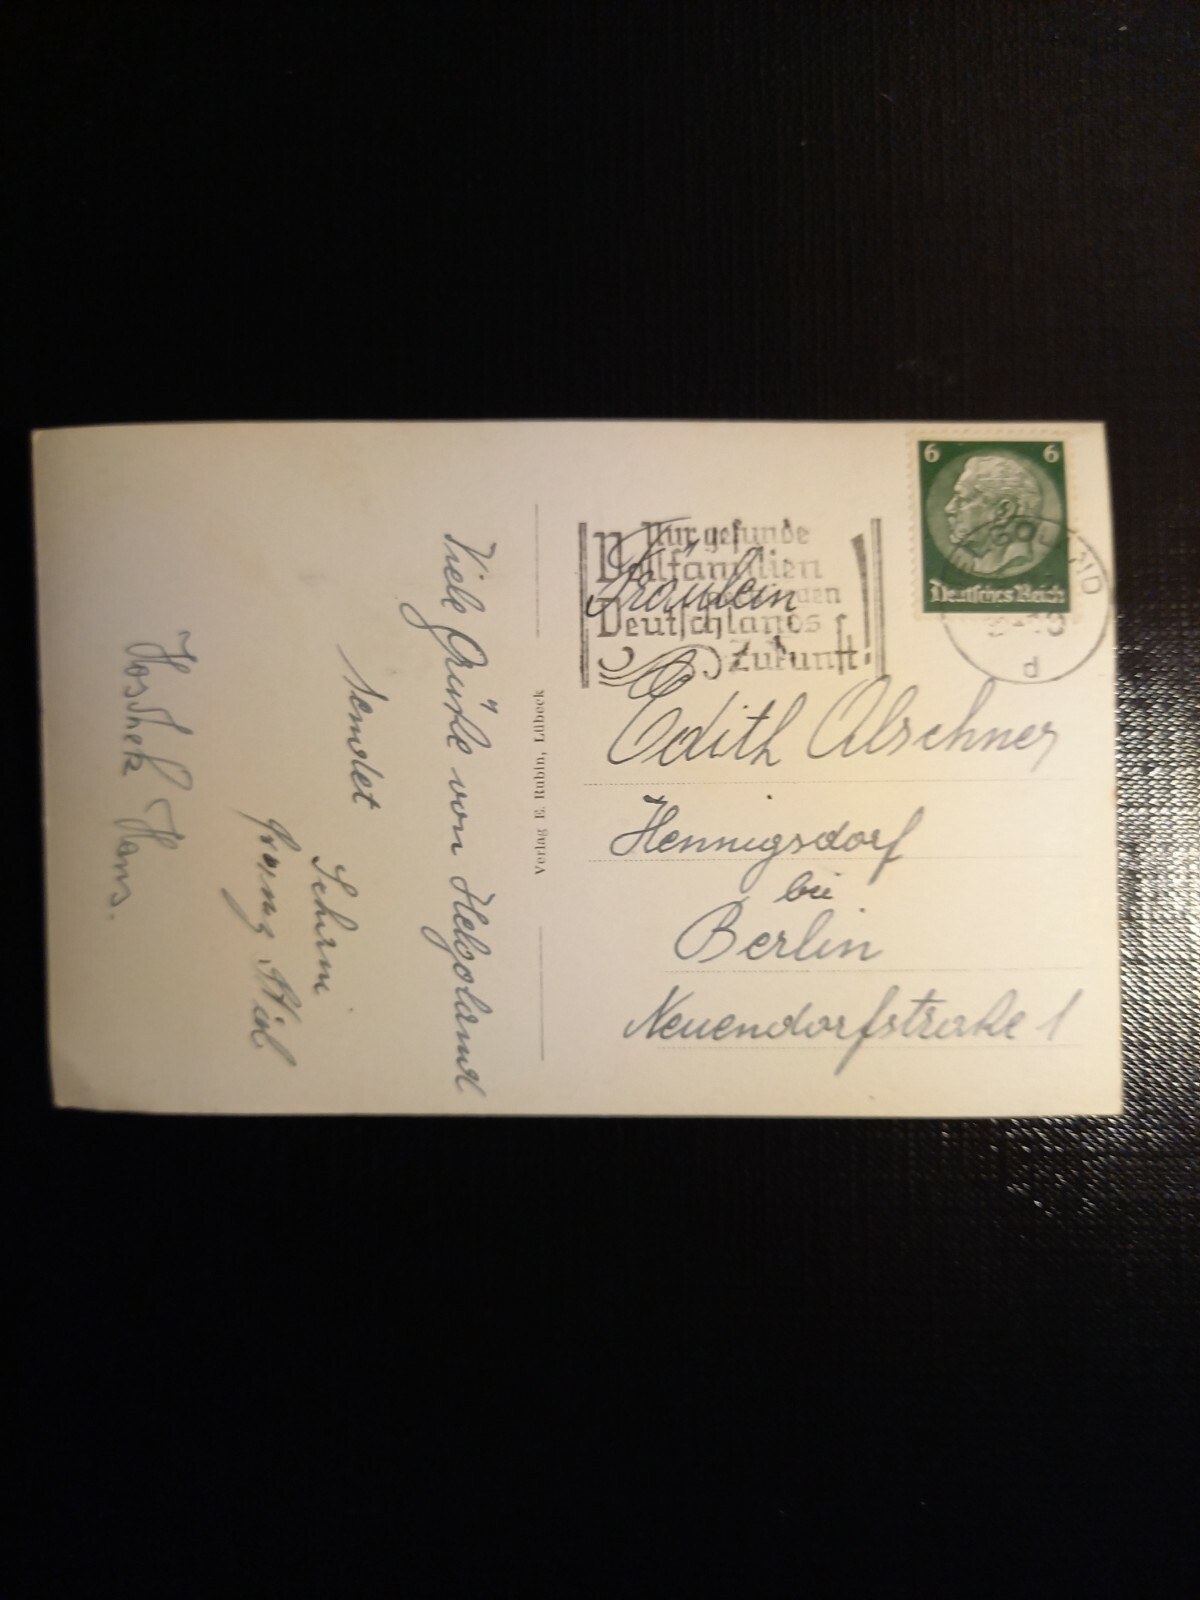 Viele Grüße von Helgoland
sendet
Hans.
Verlag E. Rubin, Lübeck
Nur gesunde
Vollfamilien
Deutschlands
Zukunft!
6 6
Deutsches Reich
HELGOLAND
d
Fräulein
Edith Alschner
Hennigsdorf
bei
Berlin
Neuendorfstraße 1